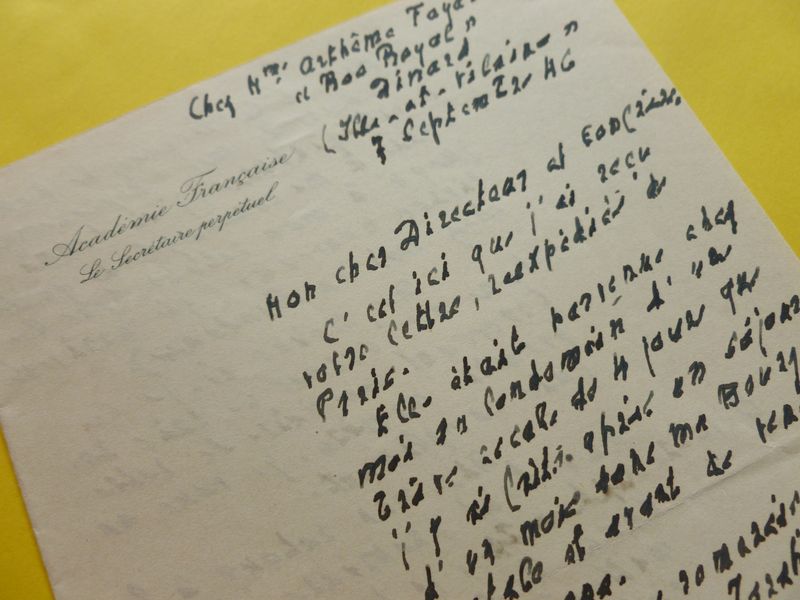 Chez Mme Arthème Faya
"Bos Royal"
Dinard
(Ille-et-Vilaine)
7 Septembre 46
Académie Française
Le Secrétaire perpétuel
Mon cher Directeur et confrère,
C'est ici que j'ai reçu
votre lettre, réexpédiée de
Paris.
Elle était parvenue chez
moi au lendemain d'une
très escale de 4 jours que
j'y ai faite après un séjour
d'un mois dans ma Bourg
et avant de